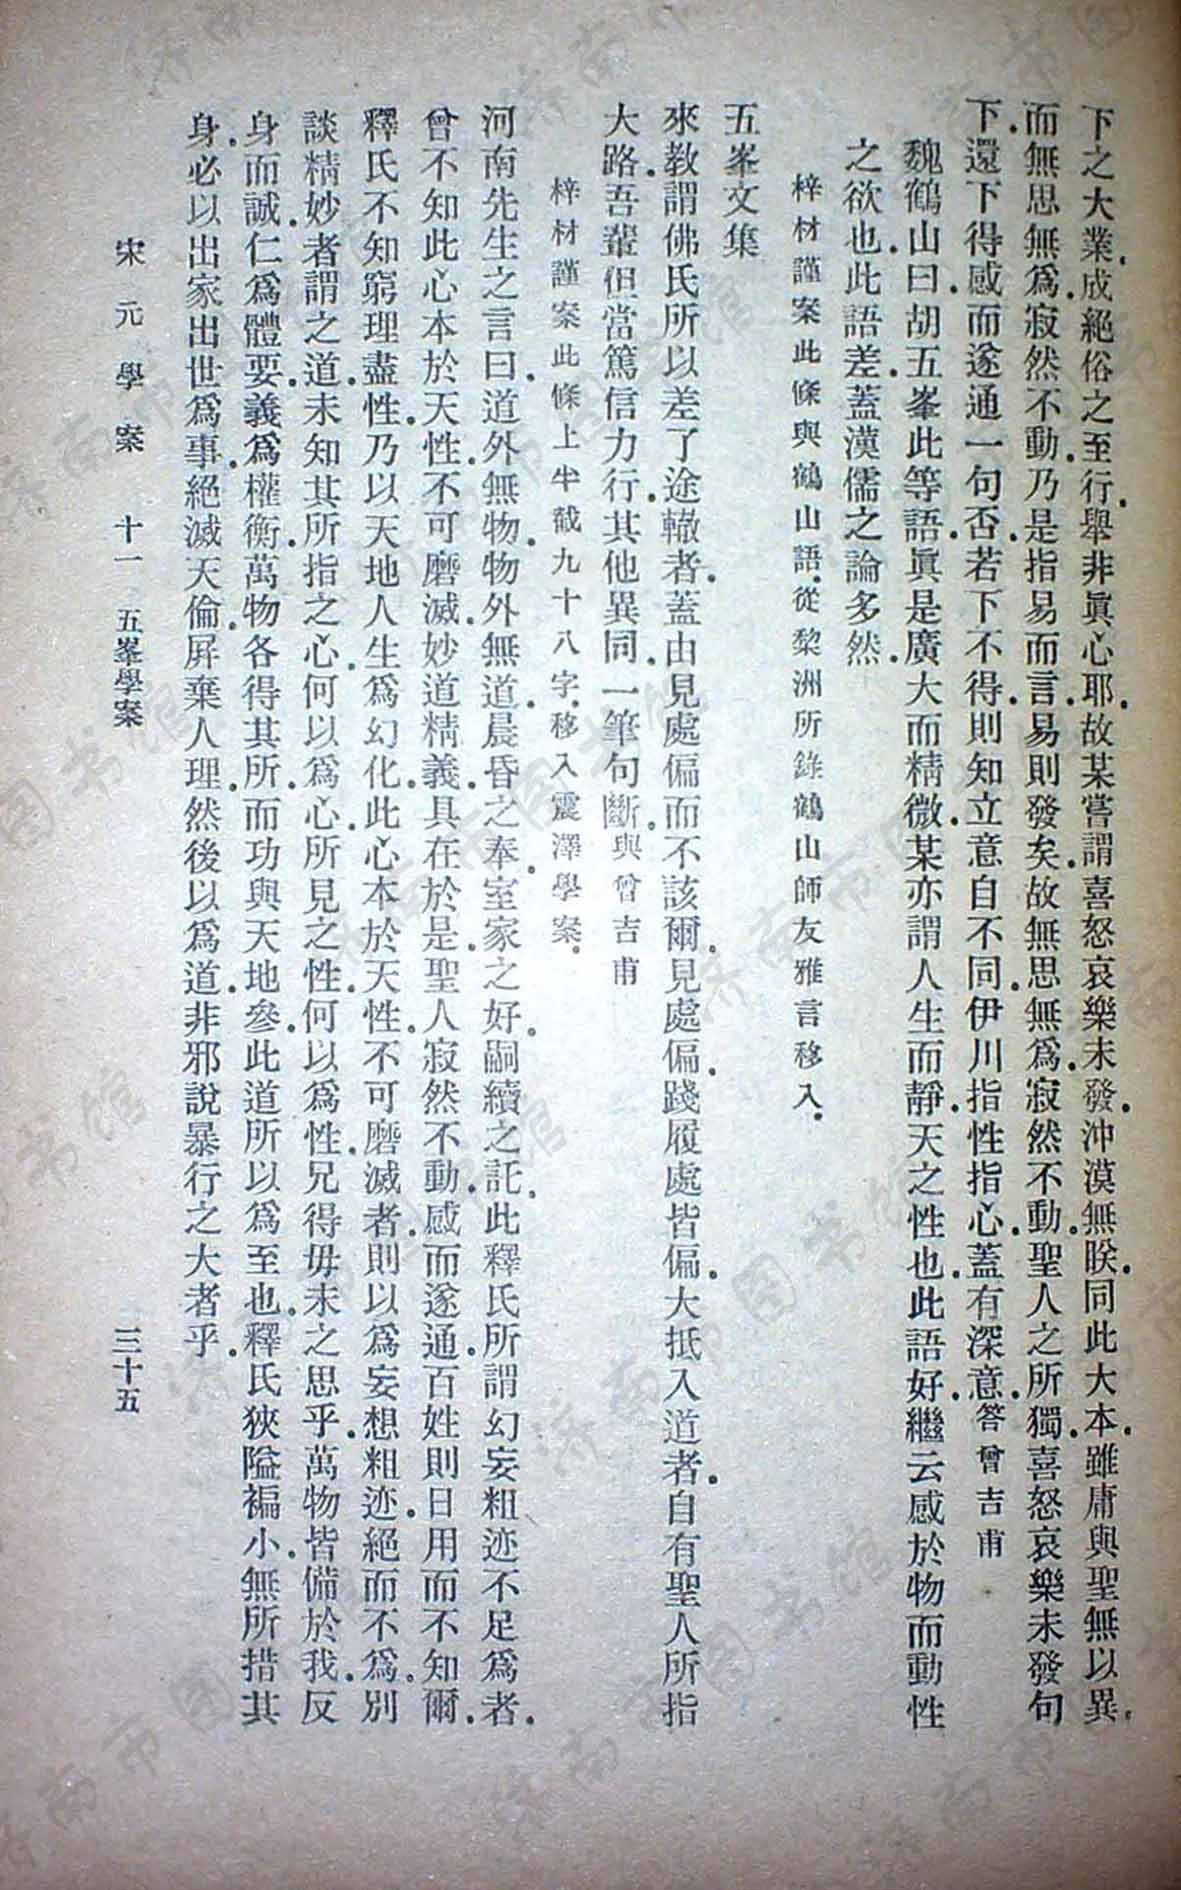 下之大業成絕俗之至行舉非眞心耶故某嘗謂喜怒哀樂未發沖漠無朕同此大本雖庸與聖無以異
而無思無爲寂然不動乃是指易而言易則發矣故無思無爲寂然不動聖人之所獨喜怒哀樂未發句
下還下得感而遂通一句否若下不得則知立意自不同伊川指性指心蓋有深意答曾吉甫
魏鶴山曰胡五峯此等語眞是廣大而精微某亦謂人生而靜天之性也此語好繼云感於物而動性
之欲也此語差蓋漢儒之論多然
梓材謹案此條與鶴山語從黎洲所錄鶴山師友雅言移入
五峯文集
來教謂佛氏所以差了途轍者蓋由見處偏而不該爾見處偏踐履處皆偏大抵入道者自有聖人所指
大路吾輩但當篤信力行其他異同一筆句斷與曾吉甫
梓材謹案此條上半截九十八字移入震澤學案
河南先生之言曰道外無物物外無道晨昏之奉室家之好嗣續之託此釋氏所謂幻妄粗迹不足爲者
曾不知此心本於天性不可磨滅妙道精義具在於是聖人寂然不動感而遂通百姓則日用而不知爾
釋氏不知窮理盡性乃以天地人生爲幻化此心本於天性不可磨滅者則以爲妄想粗迹絕而不爲別
談精妙者謂之道未知其所指之心何以爲心所見之性何以爲性兄得毋未之思乎萬物皆備於我反
身而誠仁爲體要義爲權衡萬物各得其所而功與天地參此道所以爲至也釋氏狹隘褊小無所措其
身必以出家出世爲事絕滅天倫屏棄人理然後以爲道非邪說暴行之大者乎
宋元學案 十一 五峯學案 三十五